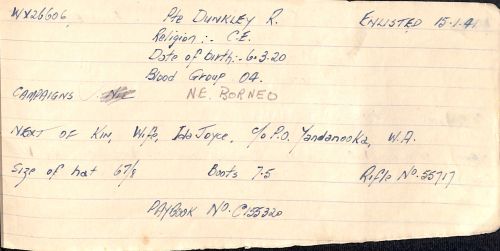 WX26606 Pte DUNKLEY R. ENLISTED 15.1.41
Religion :- C.E.
Date of birth:- 6.3.20
Blood Group O4.
CAMPAIGNS N.E. BORNEO
NEXT OF Kin, Wife, Ida Joyce, c/o P.O. Yandanooka, W.A.
Size of hat 6 7/8 Boots 7.5 Rifle No. 55717
PAYBOOK No. C155320